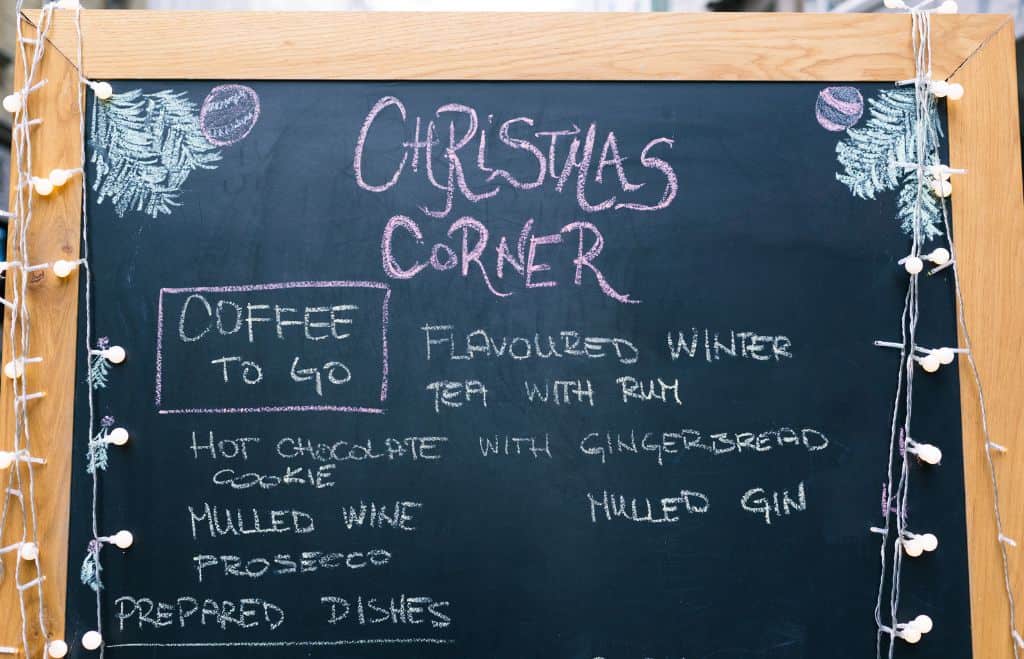 CHRISTMAS
CORNER
COFFEE
TO GO
FLAVOURED WINTER
TEA WITH RUM
HOT CHOCOLATE WITH GINGERBREAD
COOKIE
MULLED WINE
MULLED GIN
PROSECCO
PREPARED DISHES